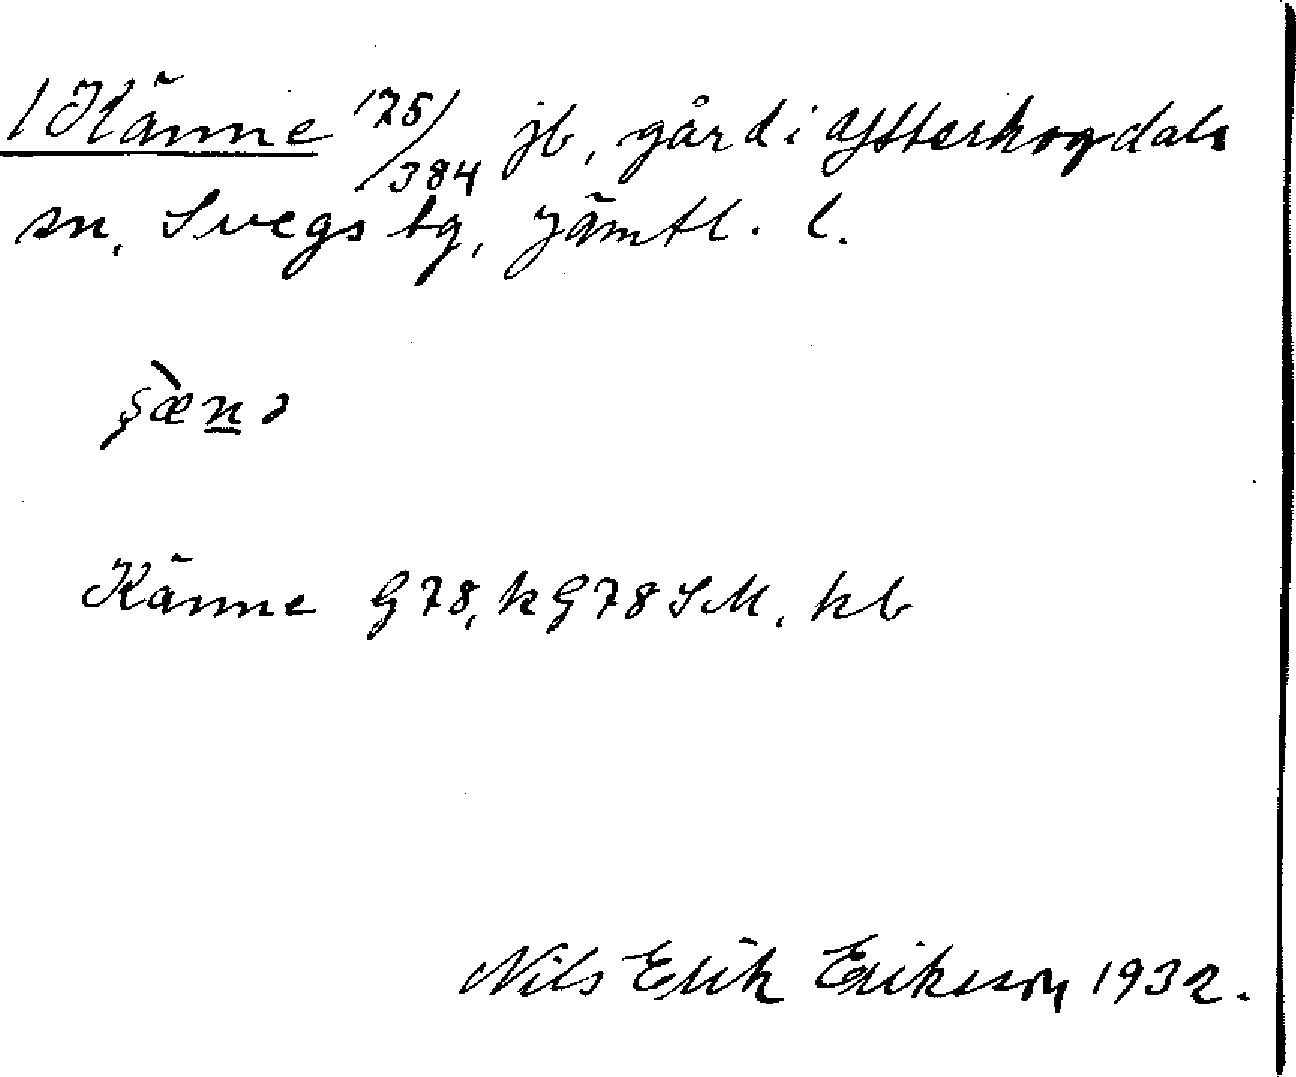 / Känne 175/384 jb, gård i Ytterhogdals
sn, Svegs tg, Jämtl. l.
Känne G78, kG78SM, kb
Nils Erik Eriksson 1932.